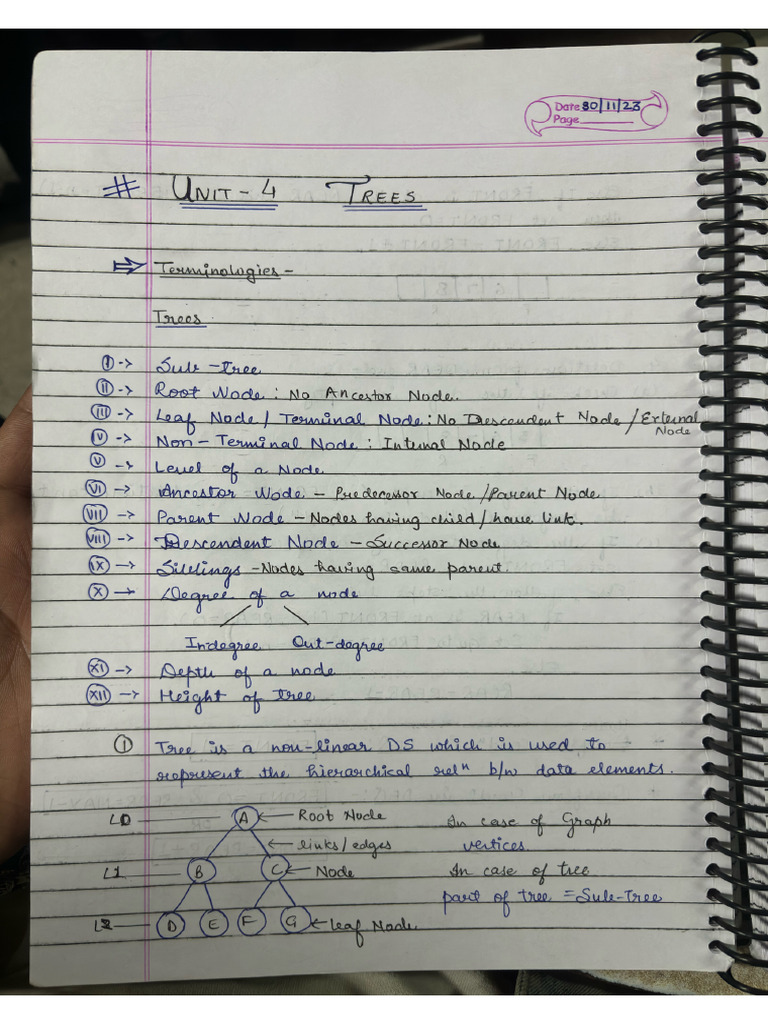 Date 30/11/23
Page
# UNIT-4 TREES
⇒ Terminologies -
Trees
(I) -> Sub-tree
(II) -> Root Node : No Ancestor Node.
(III) -> Leaf Node / Terminal Node : No Descendent Node / External Node
(IV) -> Non-Terminal Node : Internal Node
(V) -> Level of a Node
(VI) -> Ancestor Node - Predecessor Node/Parent Node
(VII) -> Parent Node - Nodes having child / have link.
(VIII) -> Descendent Node - Successor Node
(IX) -> Siblings - Nodes having same parent.
(X) -> Degree of a node
Indegree Out-degree
(XI) -> Depth of a node
(XII) -> Height of tree
(I) Tree is a non-linear DS which is used to
represent the hierarchical relⁿ b/w data elements.
L0 A Root Node In case of Graph
links/edges vertices
L1 B C Node In case of tree
part of tree = Sub-Tree
L2 D E F G Leaf Node